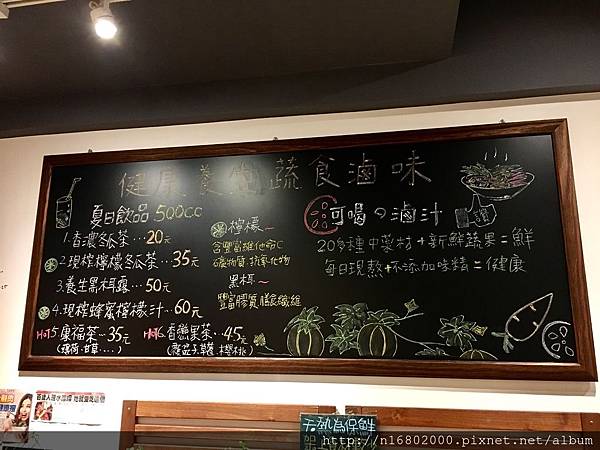 健康養生蔬食滷味
夏日飲品 500cc
1.香濃冬瓜茶...20元
2.現榨檸檬冬瓜茶...35元
3.養生黑木耳露...50元
4.現榨蜂蜜檸檬汁...60元
HOT5.康福茶...35元
(甘草...)
HOT6.香戀果茶...45元
(覆盆子.草莓.櫻桃)
檸檬~
含豐富維他命C
礦物質.抗氧化物
黑木耳~
豐富膠質.膳食纖維
可喝の滷汁
20多種中藥材+新鮮蔬果=鮮
每日現熬+不添加味精=健康
天熱為保鮮
http://n16802000.pixnet.net/album